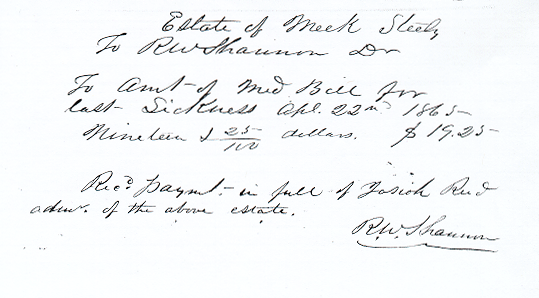 Estate of Meek Steely
To R W Shannon Dr
To Amt of Med Bill for
last Sickness Apl. 22nd 1865
Nineteen & 25/100 dollars. $ 19.25
Recd paymt in full of Josiah Reed
admr. of the above estate.
R.W. Shannon